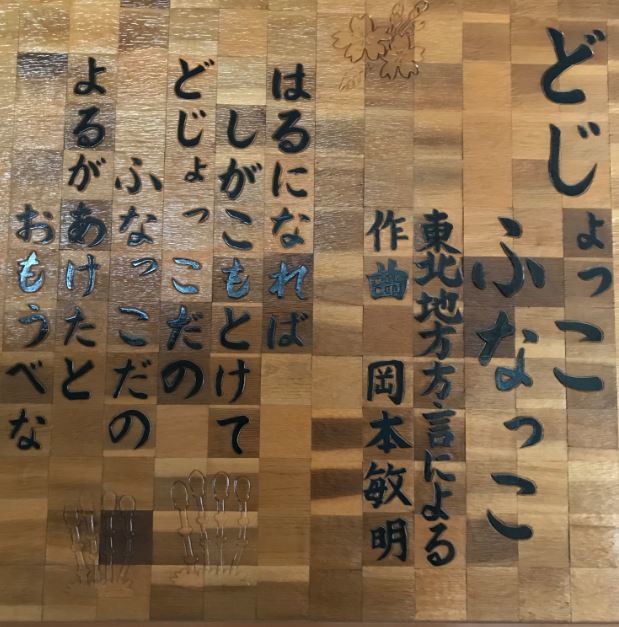 どじょっこ
ふなっこ
東北地方方言による
作曲 岡本敏明
はるになれば
しがこもとけて
どじょっこだの
ふなっこだの
よるがあけたと
おもうべな